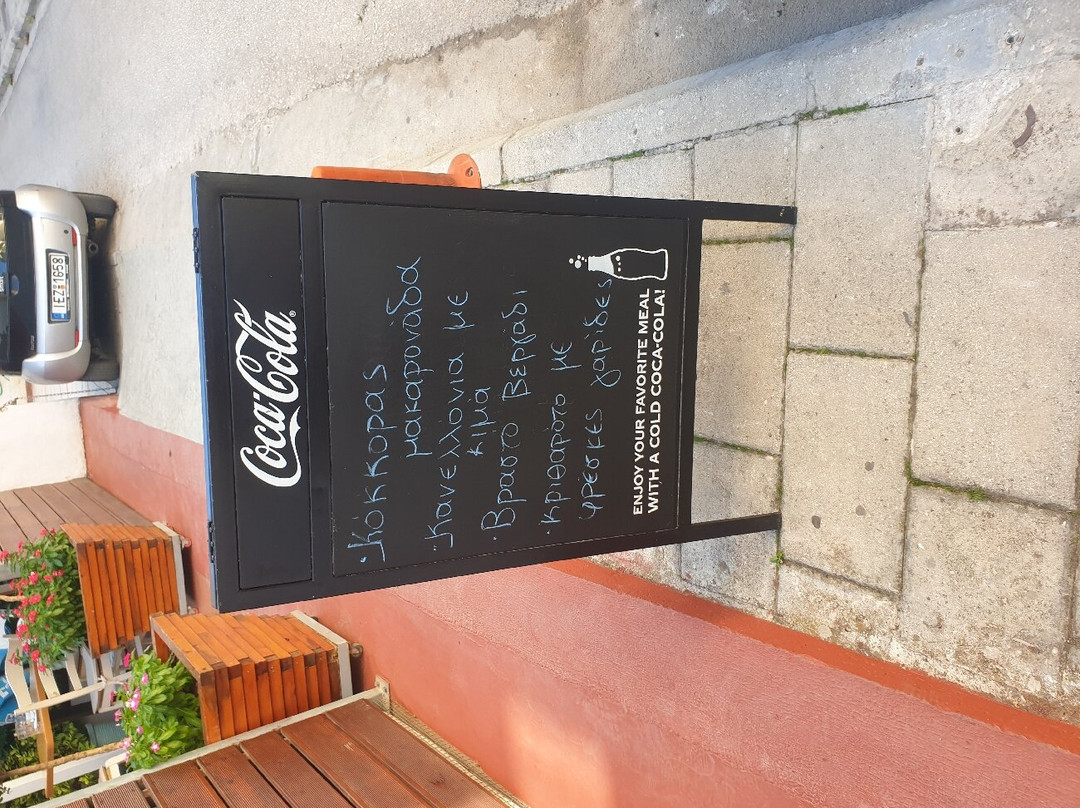 Coca-Cola®
·Κόκκορας
μακαρονάδα
·Κανελλόνια με
κιμά
·Βραστό Βεργάδι
·κριθαρότο με
φρέσκες γαρίδες
ENJOY YOUR FAVORITE MEAL
WITH A COLD COCA-COLA!
IEZ 1658